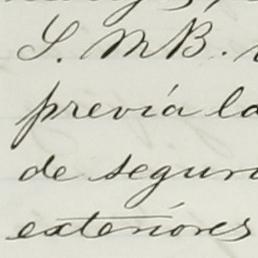 S. M. B.
previa la
de segur
exteriores